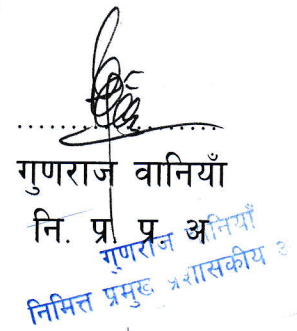 गुणराज वानियाँ
नि. प्र. प्र. अ
गुणराज वानियाँ
निमित्त प्रमुख प्रशासकीय अ